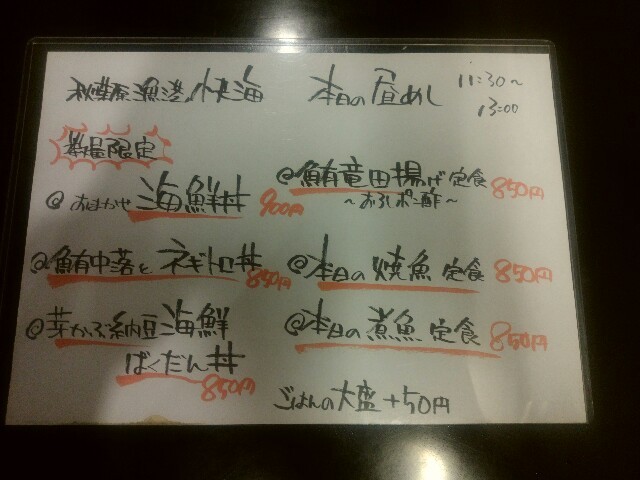 秋葉原漁港 快海 本日の昼めし 11:30~
13:00
数量限定
@おまかせ 海鮮丼 900円
@鮪竜田揚げ定食 850円
~おろしポン酢~
@鮪中落とネギトロ丼 850円
@本日の焼魚定食 850円
@芽かぶ納豆海鮮
ばくだん丼 850円
@本日の煮魚定食 850円
ごはんの大盛+50円